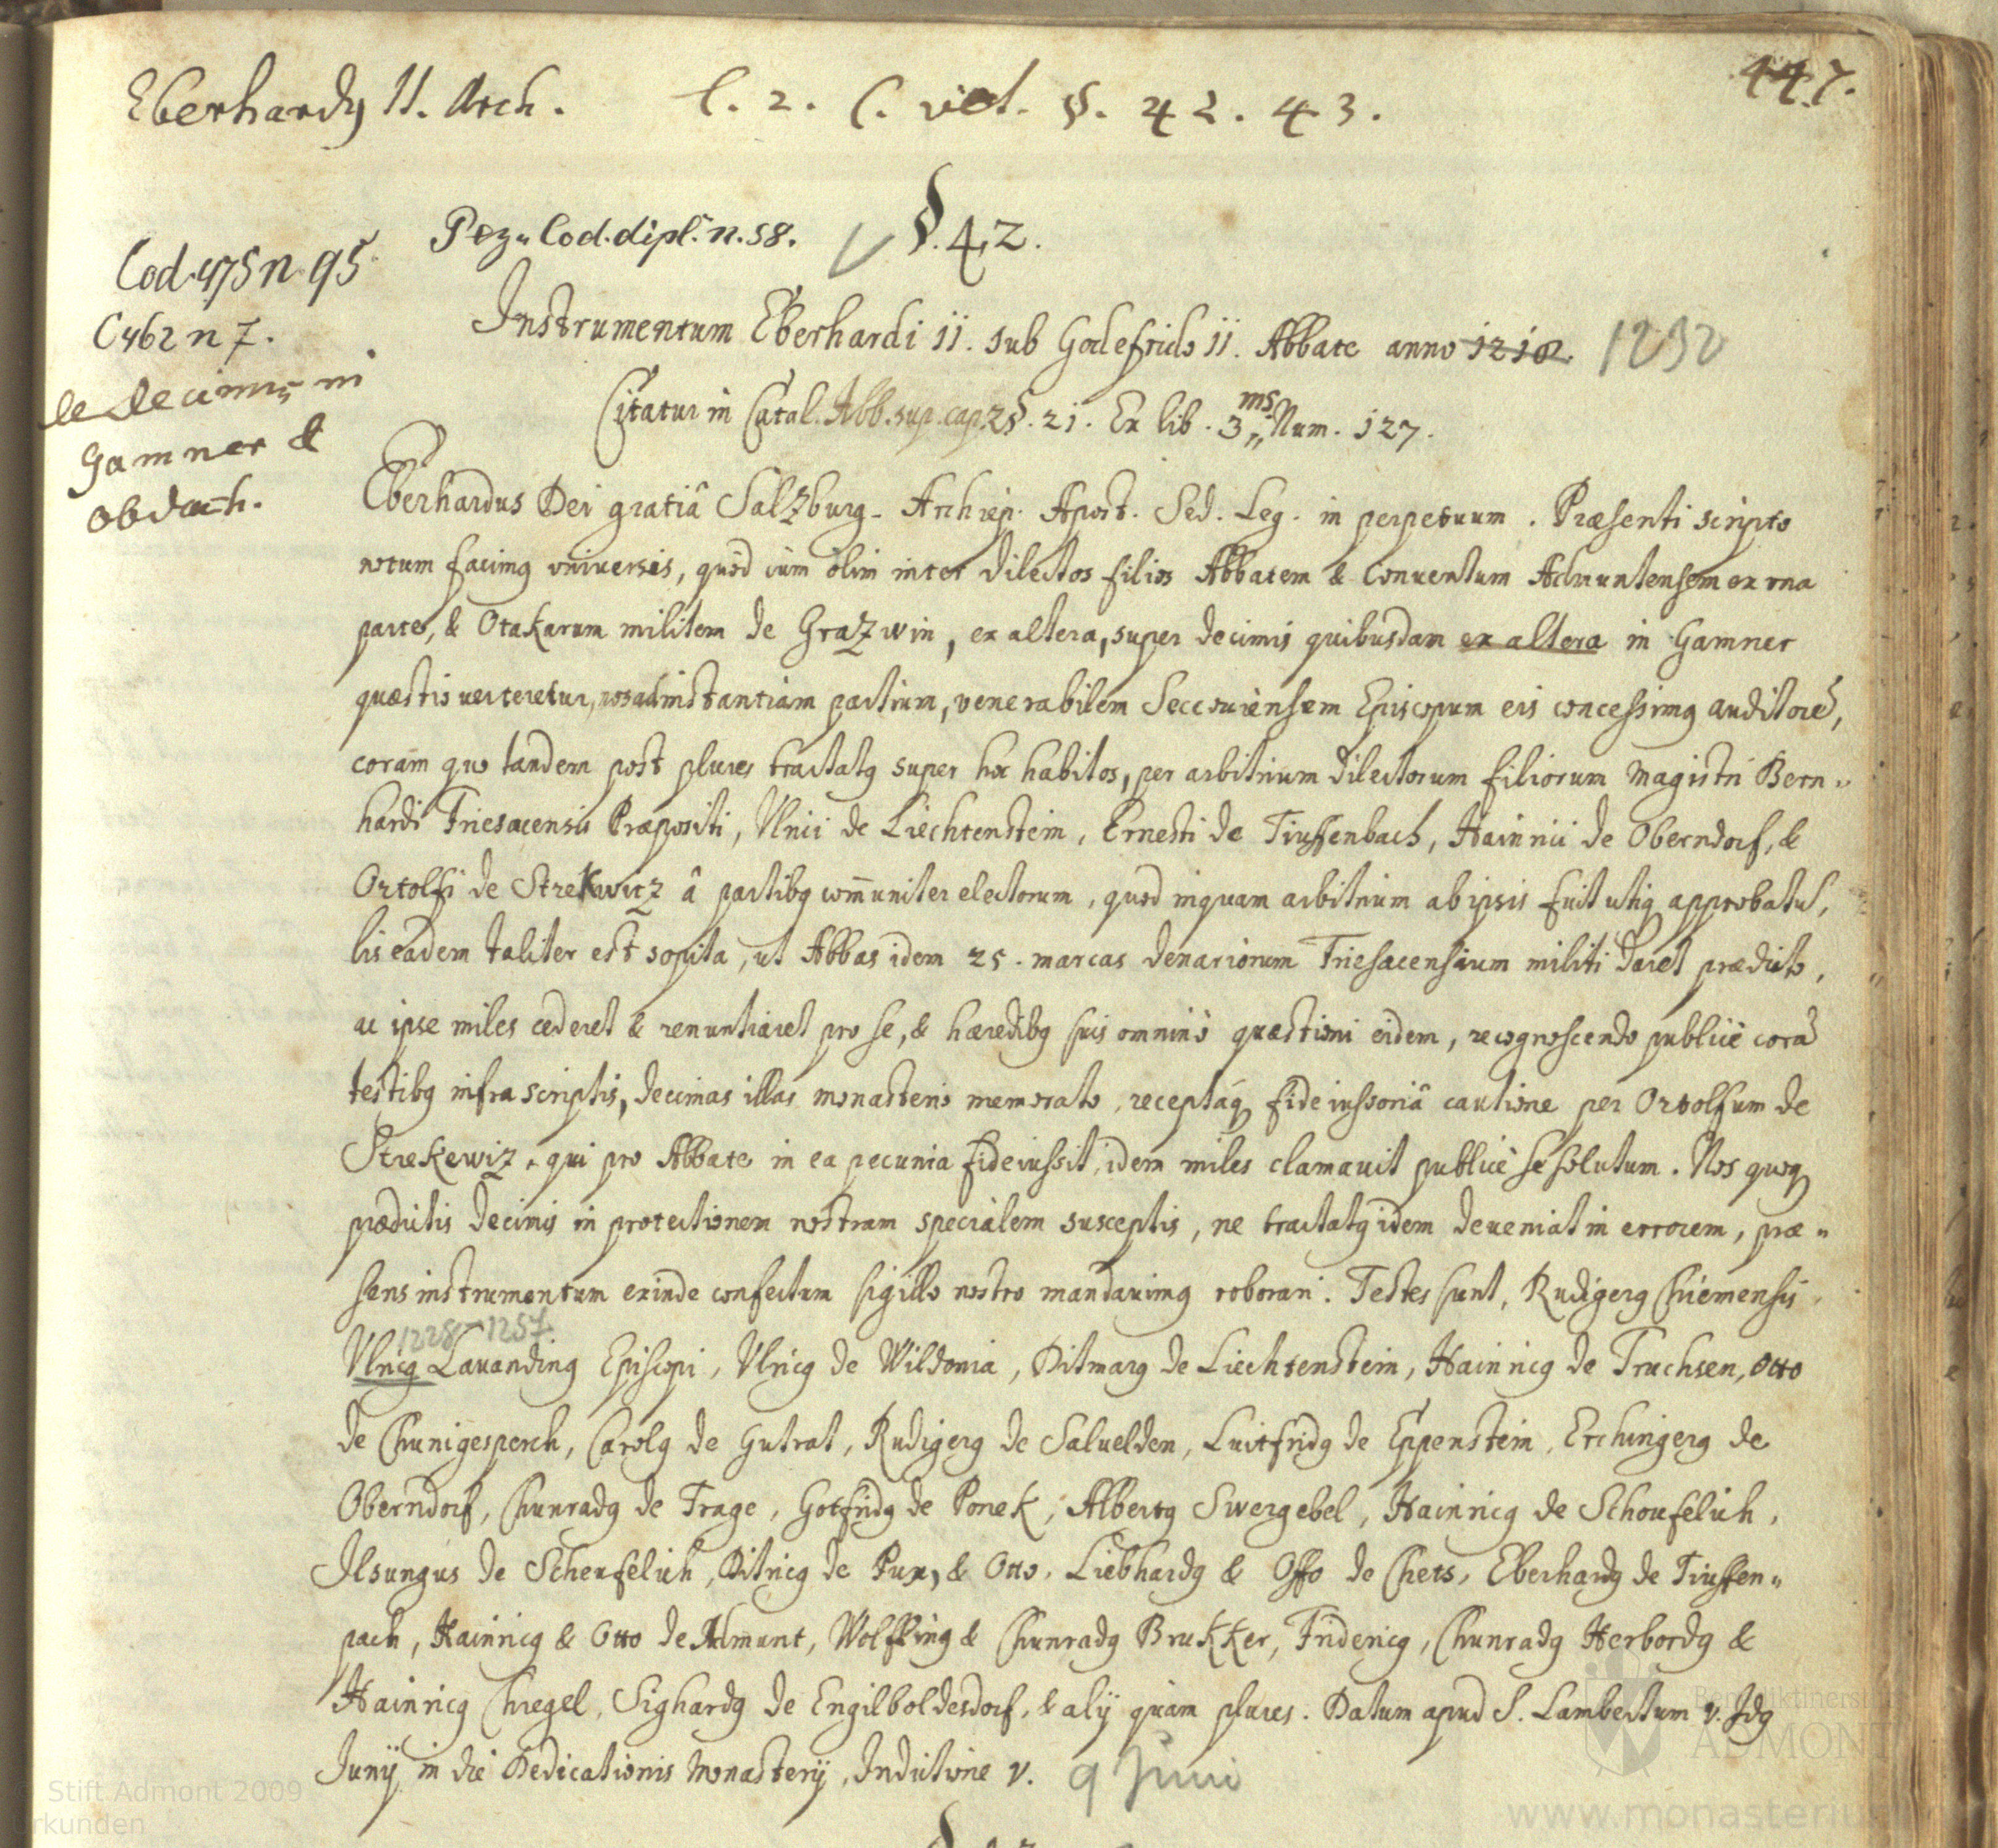 Eberhardꝯ II. Arch. l. 2. C. viet. §. 42. 43. 447.
Pez. Cod. dipl. n. 58. §. 42.
Cod. 475 n. 95
C 462 n 7.
de decimis in
Gamner &
Obdach.
Instrumentum Eberhardi II. sub Godefrido II. Abbate anno 1210. 1232
Citatur in Catal. Abb. sup. cap. 2 §. 21. Ex lib. 3 ms. Num. 127.
Eberhardus Dei gratiâ Salzburg. Archiep. Apost. Sed. Leg. in perpetuum. Præsenti scripto
notum facimꝯ vniuersis, quòd cùm olim inter dilectos filios Abbatem & Conuentum Admuntensem ex vna
parte, & Otakarum militem de Grazwin, ex altera, super decimis quibusdam ex altera in Gamner
quæstio verteretur, nos ad instantiam partium, venerabilem Seccouiensem Episcopum eis concessimꝯ auditorē,
coram quo tandem post plures tractatꝯ super hoc habitos, per arbitrium dilectorum filiorum Magistri Bern„
hardi Friesacensis Præpositi, Vlrici de Liechtenstein, Ernesti de Tiuffenbach, Hainrici de Oberndorf, &
Ortolfi de Strekwitz â partibꝯ com̄uniter electorum, quod inquam arbitrium ab ipsis fuit utiq approbatū,
lis eadem taliter est sopita, ut Abbas idem 25. marcas denariorum Friesacensium militi daret prædicto,
ac ipse miles cederet & renuntiaret pro se, & hæredibꝯ suis omninò quæstioni eidem, recognoscendo publicè corā
testibꝯ infra scriptis, decimas illas monasterio memorato, receptáq fideiussoriâ cautione per Ortolfum de
Strekewiz, qui pro Abbate in ea pecunia fideiussit, idem miles clamauit publicè se solutum. Nos quoq
prædictis decimis in protectionem nostram specialem susceptis, ne tractatꝯ idem deueniat in errorem, præ„
sens instrumentum exinde confectum sigillo nostro mandauimꝯ roborari. Testes sunt, Rudigerꝯ Chiemensis,
1228-1257
Vlricꝯ Lauandinꝯ Episcopi, Vlricꝯ de Wildonia, Ditmarꝯ de Liechtenstein, Hainricꝯ de Truchsen, Otto
de Chunigesperch, Carolꝯ de Gutrat, Rudigerꝯ de Saluelden, Luitfridꝯ de Eppenstein, Erchingerꝯ de
Oberndorf, Chunradꝯ de Frage, Gotfridꝯ de Ponek, Albertꝯ Swergebel, Hainricꝯ de Schoufelich,
Ilsungus de Scheufelich, Ditricꝯ de Pux, & Otto, Liebhardꝯ & Offo de Chets, Eberhardꝯ de Tiuffen„
pach, Hainricꝯ & Otto de Admunt, Wolffingꝯ & Chunradꝯ Brukker, Fridericꝯ, Chunradꝯ Herbordꝯ &
Hainricꝯ Chregel, Sighardꝯ de Engilboldesdorf, & alÿ quàm plures. Datum apud S. Lambertum v. Idꝯ
Junÿ in die Dedicationis Monasterÿ, Indictione v. 9 Juni
Stift Admont 2009
rkunden
ADMONT
www.monasteriu